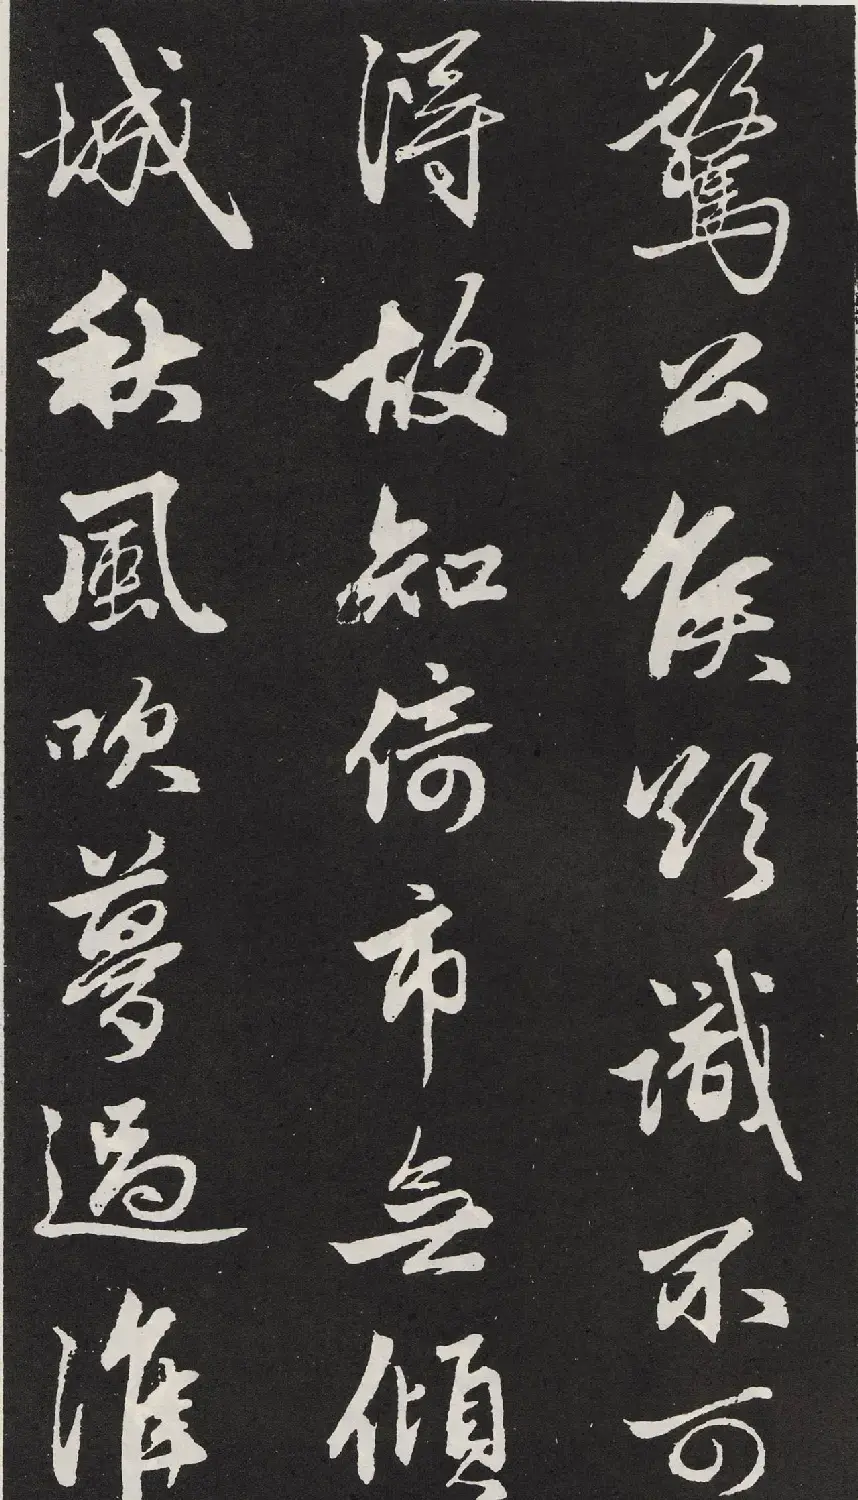 驚公侯欲識不可
得故知倚市無傾
城秋風吹夢過淮